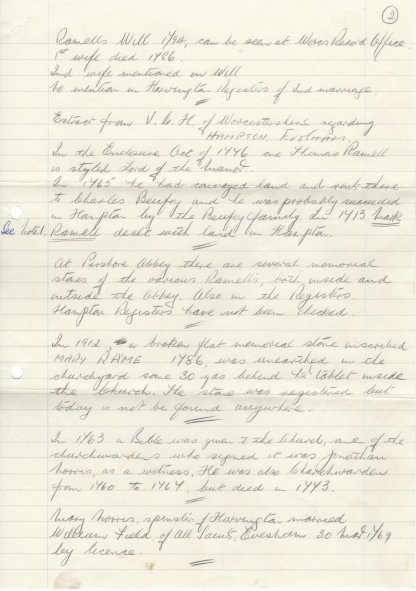 2
Ramells Will 1794, can be seen at Worcs Record Office.
1st wife died 1786.
2nd wife mentioned in Will
No mention in Harvington Registers of 2nd marriage.
Extract from V.C.H. of Worcestershire regarding
HAMPTON, EVESHAM.
In the Enclosure Act of 1776 one Thomas Ramell
is styled Lord of the Manor
In 1765 he had conveyed land and rent there
to Charles Beufoy and he was probably succeeded
in Hampton by the Beufoy family. In 1713 Mark
See note 1. Ramell dealt with land in Hampton.
At Pershore Abbey there are several memorial
stones of the various Ramells, both inside and
outside the Abbey. Also in the Registers.
Hampton Registers have not been checked.
In 1912, a broken flat memorial stone inscribed
MARY RAME 1786, was unearthed in the
churchyard some 30 yds behind the tablet inside
the Church. The stone was registered but
today is not be found anywhere.
In 1763 a Bible was given to the Church, one of the
churchwardens who signed it was Jonathan
Morris, as a witness. He was also Churchwarden
from 1760 to 1764, but died in 1773.
Mary Morris, spinster of Harvington married
William Field of All Saints, Evesham 30 Mar 1769
by licence.